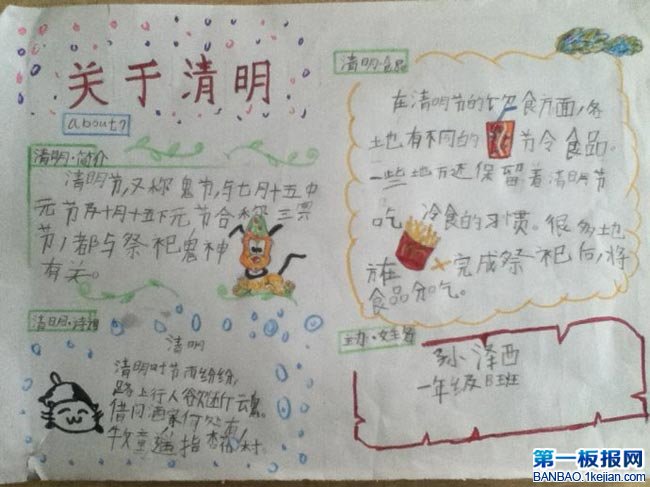 关于清明
about?
清明·简介
清明节,又称鬼节,与七月十五中
元节及十月十五下元节合称三冥
节,都与祭祀鬼神
有关。
清明·诗词
清明
清明时节雨纷纷,
路上行人欲断魂。
借问酒家何处有,
牧童遥指杏花村。
清明·食品
在清明节的饮食方面,各
土也有不同的节令食品。
一些地方还保留着清明节
吃冷食的习惯。很多地
方在完成祭祀后,将
食品分吃。
主办·女主角
孙泽西
一年级B班
第一板报网
BANBAO.1kejian.com